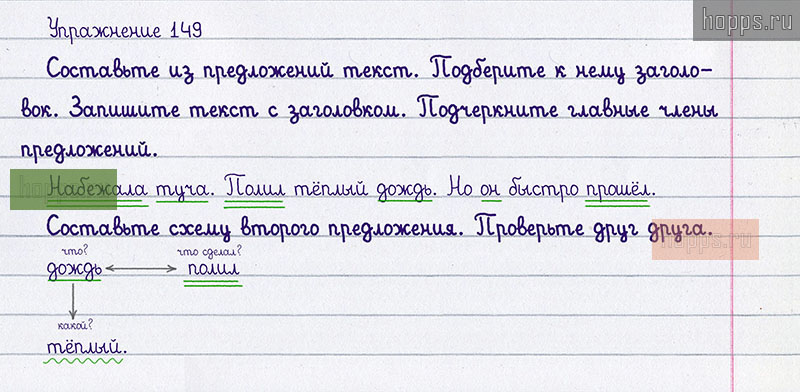 hopps.ru
Упражнение 149
Составьте из предложений текст. Подберите к нему заголо-
вок. Запишите текст с заголовком. Подчеркните главные члены
предложений.
Набежала туча. Полил тёплый дождь. Но он быстро прошёл.
Составьте схему второго предложения. Проверьте друг друга.
hopps.ru
что? что сделал?
дождь полил
какой?
тёплый.